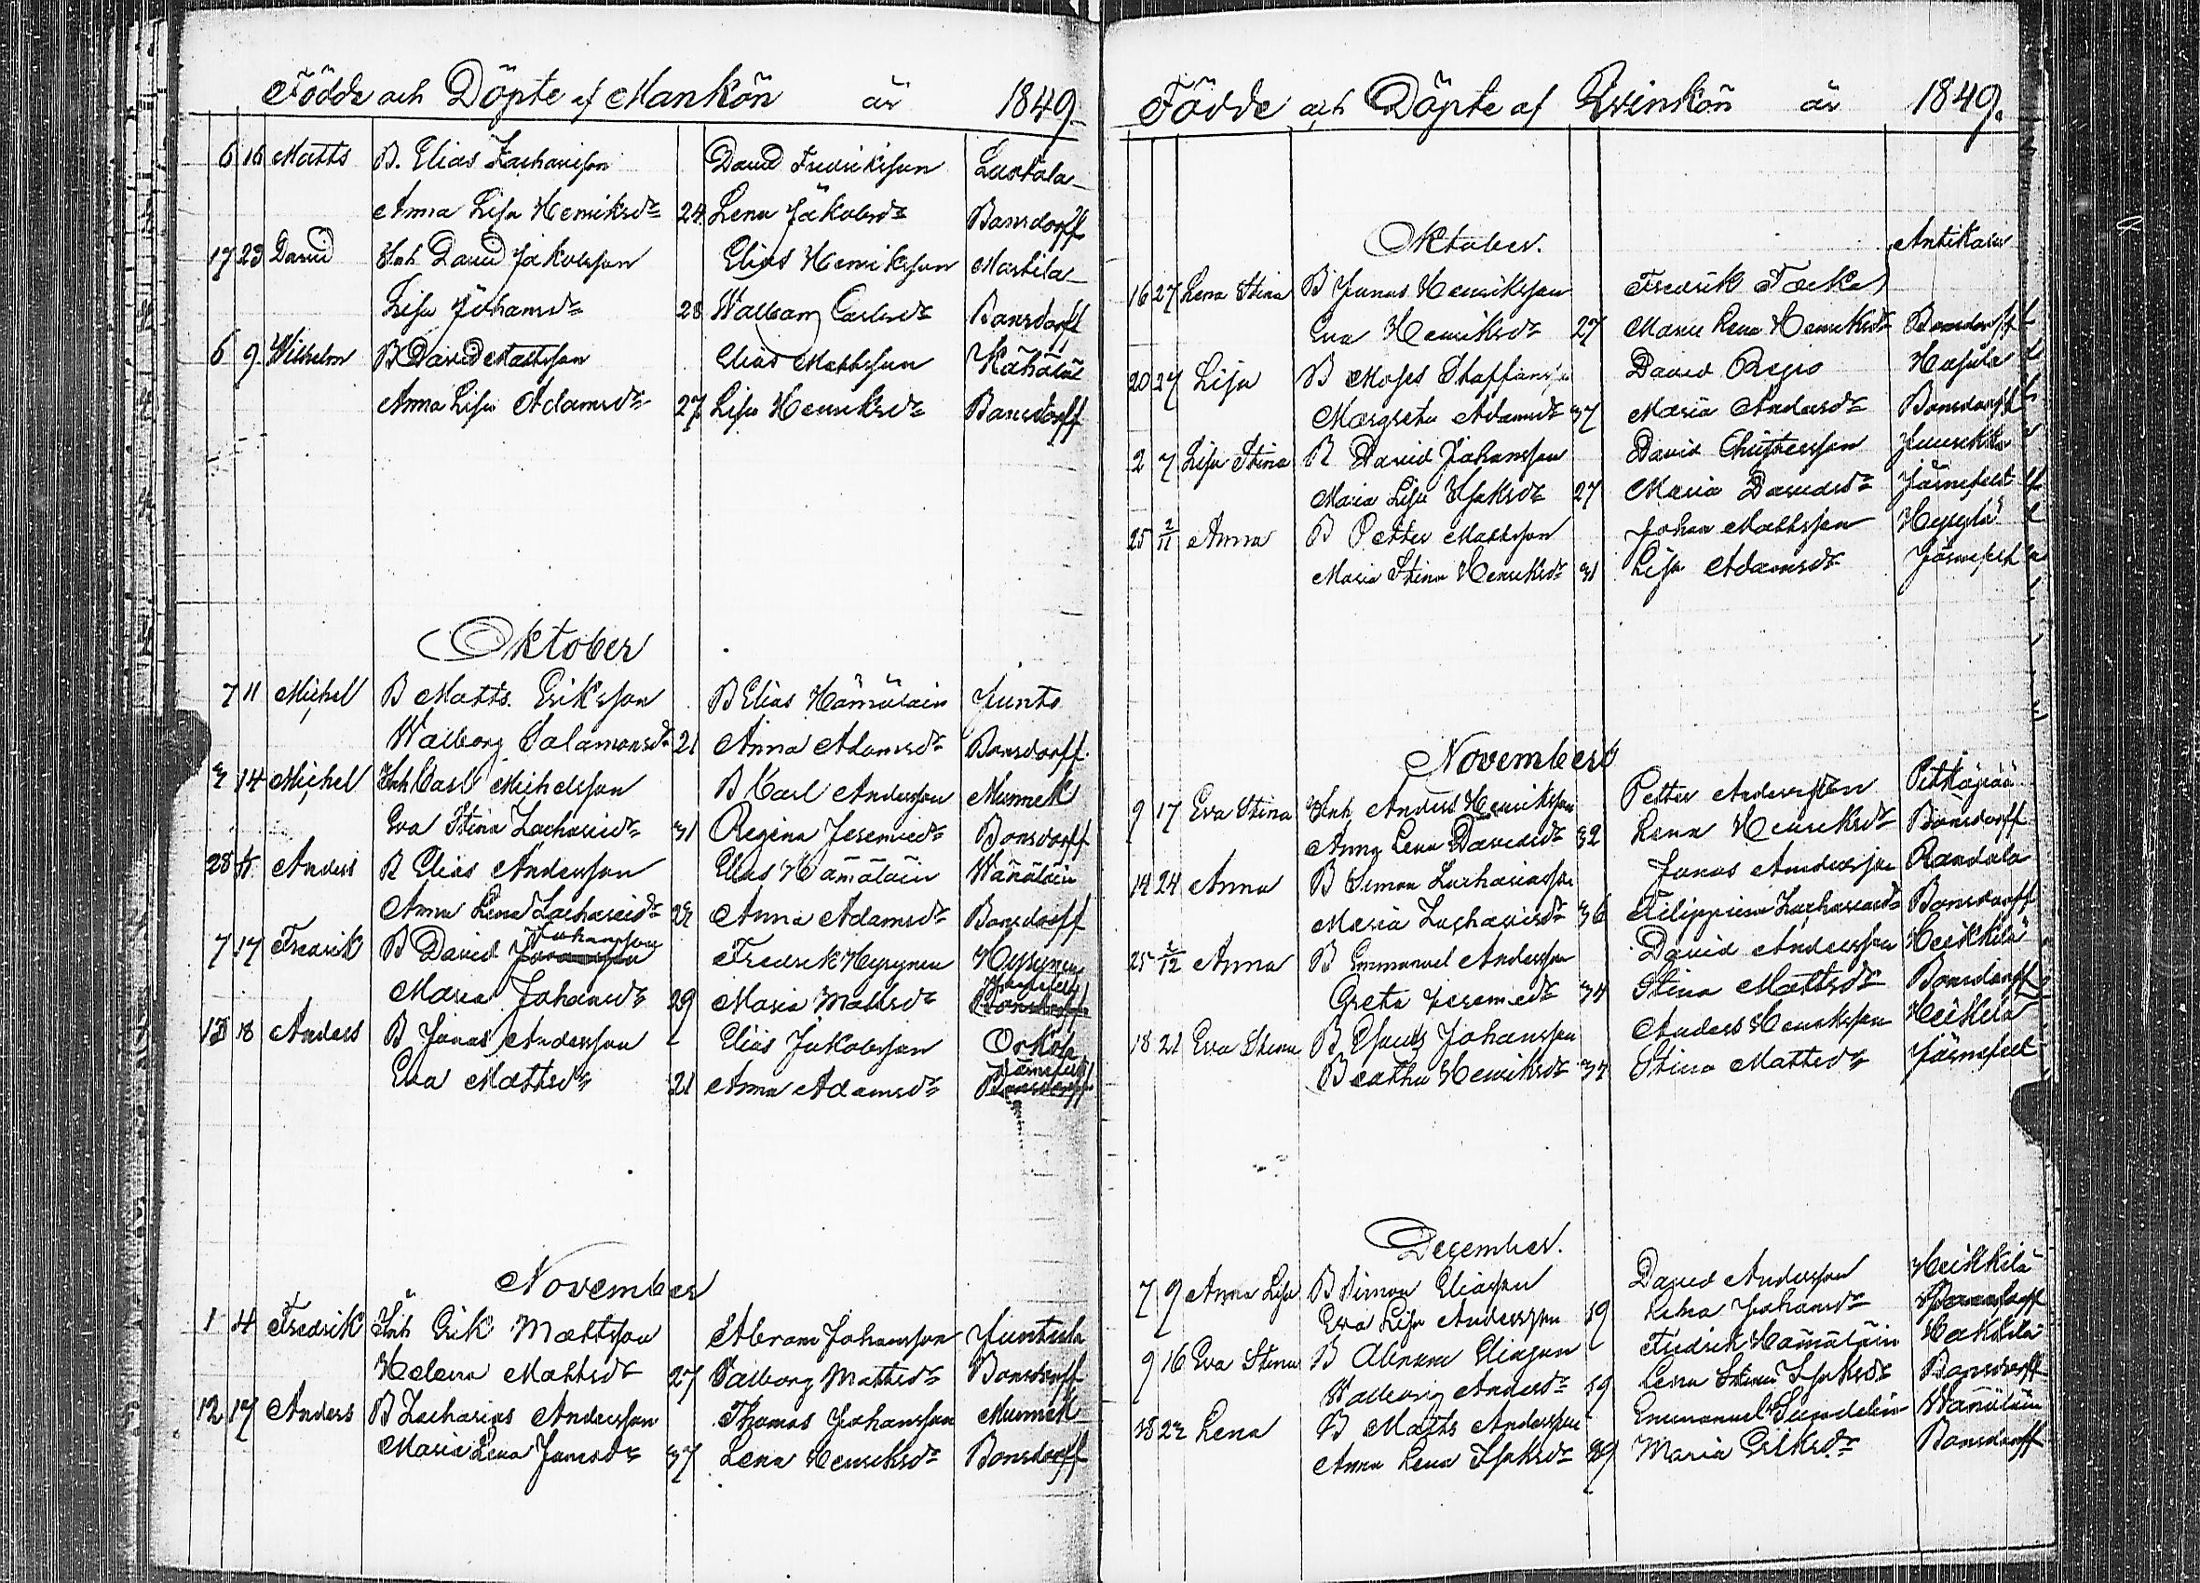 Födde och Döpte af Mankön år 1849.
6 16 Matts B. Elias Zacharisson David Fredriksson Lastala
Anna Lisa Henriksdr 24 Lena Jakobsdr Bonsdorff
17 23 David Inh David Jakobsson Elias Henriksson Martila
Lisa Johansdr 28 Walborg Carlsdr Bonsdorff
6 9 Wilhelm B David Mattsson Elias Mattsson Kähälä
Anna Lisa Adamsdr 27 Lisa Henriksdr Bonsdorff
Oktober
7 11 Michel B Matts Eriksson B Elias Hämäläin Junto
Walborg Salamonsdr 21 Anna Adamsdr Bonsdorff
3 14 Michel Inh Carl Michelsson B Carl Andersson Munnek
Eva Stina Zachariedr 31 Regina Jeremiedr Bonsdorff
28 Anders B Elias Andersson Elias Hämäläin Wänäläin
Anna Lena Zachariedr Anna Adamsdr Bonsdorff
Johansson
7 17 Fredrik B David Fredrik Hyrynen Hyrynen
Maria Johansdr 29 Maria Mattsdr Bonsdorff
13 18 Anders B Jonas Andersson Elias Jakobsson Orkola
Järnefelt
Eva Mattsdr 21 Anna Adamsdr Bonsdorff
November
1 4 Fredrik Inh Erik Mattsson Abram Johansson Juntula
Helena Mattsdr 27 Walborg Mattsdr Bonsdorff
12 17 Anders B Zacharias Andersson Thomas Johansson Munnek
Maria Lena Jonasdr 37 Lena Henriksdr Bonsdorff
Födde och Döpte af Qvinkön år 1849.
Oktober.
Antikain
16 27 Lena Stina B Jonas Henriksson Fredrik
Eva Henriksdr 27 Maria Lena Henriksdr Bonsdorff
20 27 Lisa B Moses Staffansson David Hasula
Margreta Adamsdr 37 Maria Andersdr Bonsdorff
2 7 Lisa Stina B David Johansson David Christersson
Maria Lisa Isaksdr 27 Maria Davidsdr Järnefelt
25 2/11 Anna B Petter Mattsson Johan Mattsson
Maria Stina Henriksdr 31 Lisa Adamsdr Järnefelt
November
9 17 Eva Stina Inh Anders Henriksson Petter Andersson Pitkäpää
Anna Lena Davidsdr 32 Lena Henriksdr Bonsdorff
14 24 Anna B Simon Zachariasson Jonas Andersson Randala
Maria Zachariedr 36 Filippina Zachariedr Bonsdorff
25 2/12 Anna B Emmanuel Andersson David Andersson Heikkilä
Greta Jeremiedr 34 Stina Mattsdr Bonsdorff
18 21 Eva Stina B Johansson Anders Henriksson Heikkilä
Beatha Henriksdr 34 Stina Mattsdr Järnefelt
December.
7 9 Anna Lisa B Simon Eliasson David Andersson Heikkilä
Eva Lisa Andersson 19 Lena Johansdr Bonsdorff
9 16 Eva Stina B Abram Eliasson Fredrik Hämäläin Hakkila
Walborg Andersdr 19 Lena Stina Isaksdr Bonsdorff
18 22 Lena B Matts Andersson Emmanuel Wänäläin
Anna Lena Isaksdr 39 Maria Eriksdr Bonsdorff